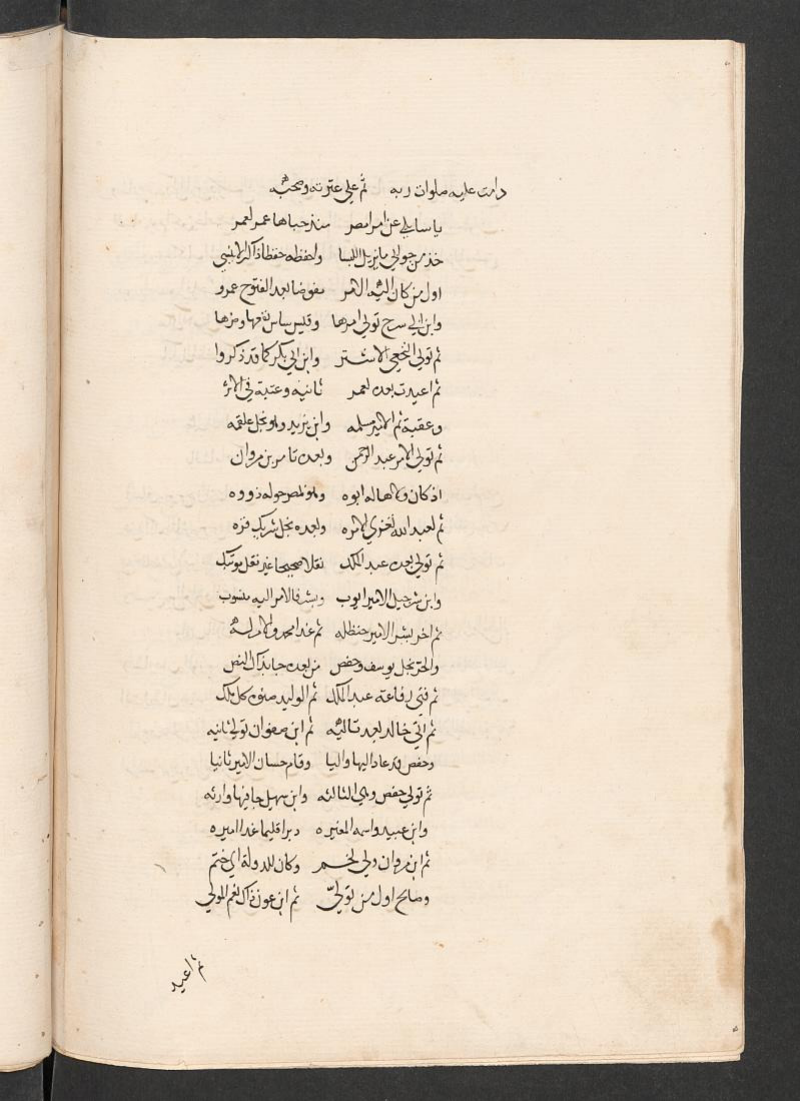 دامت عليه صلوات ربه ثم على عترته وصحبه
يا سايلي عن امر مصر منذ حباها عمر لعمر
خذ من جوابي ما يزيل اللبسا واحفظه حفظا ذاكرا لا ينسى
اول من كان اليه الامر مفوضا بعد الفتوح عمرو
وابن ابي سرح تولى امرها وقيس ساس نفعها وضرها
ثم تولى النخعي الاشتر وابن ابي بكر كما قد ذكروا
ثم اعيدت بعده لعمر ثانية وعتبة في الاثر
وعقبة ثم الامير مسلمه وابن يزيد وهو نجل علقمه
ثم تولى الامر عبد الرحمن وبعده تامر بن مروان
اذ كان ولاها له ابوه وهو بمصر حوله ذووه
ثم لعبد الله تعزى الامره وبعده نجل شريك قره
ثم تولى بعده عبد الملك نقلا صحيحا غير نقل مؤتفك
وابن شرحبيل الامير ايوب وبشر فالامر اليه منسوب
ثم اخو بشر الامير حنظله ثم غدا محمد والامر له
والحر نجل يوسف وحفص من بعده جا بذاك النص
ثم فتى رفاعة عبد الملك ثم الوليد صنوه كل ملك
ثم اتى خالد بعد تاليه ثم ابن صفوان تولى ثانيه
وحفص قد عاد اليها واليا وقام حسان الامير ثانيا
ثم تولى حفص وهي الثالثه وابن سهيل جا فيها وارثه
وابن عبيد واسمه المغيره دبر اقليما غدا اميره
ثم ابن مروان ولي لخم وكان للدولة اي ختم
وصالح اول من تولى ثم ابن عون ذاك نعم المولى
ثم اعيد